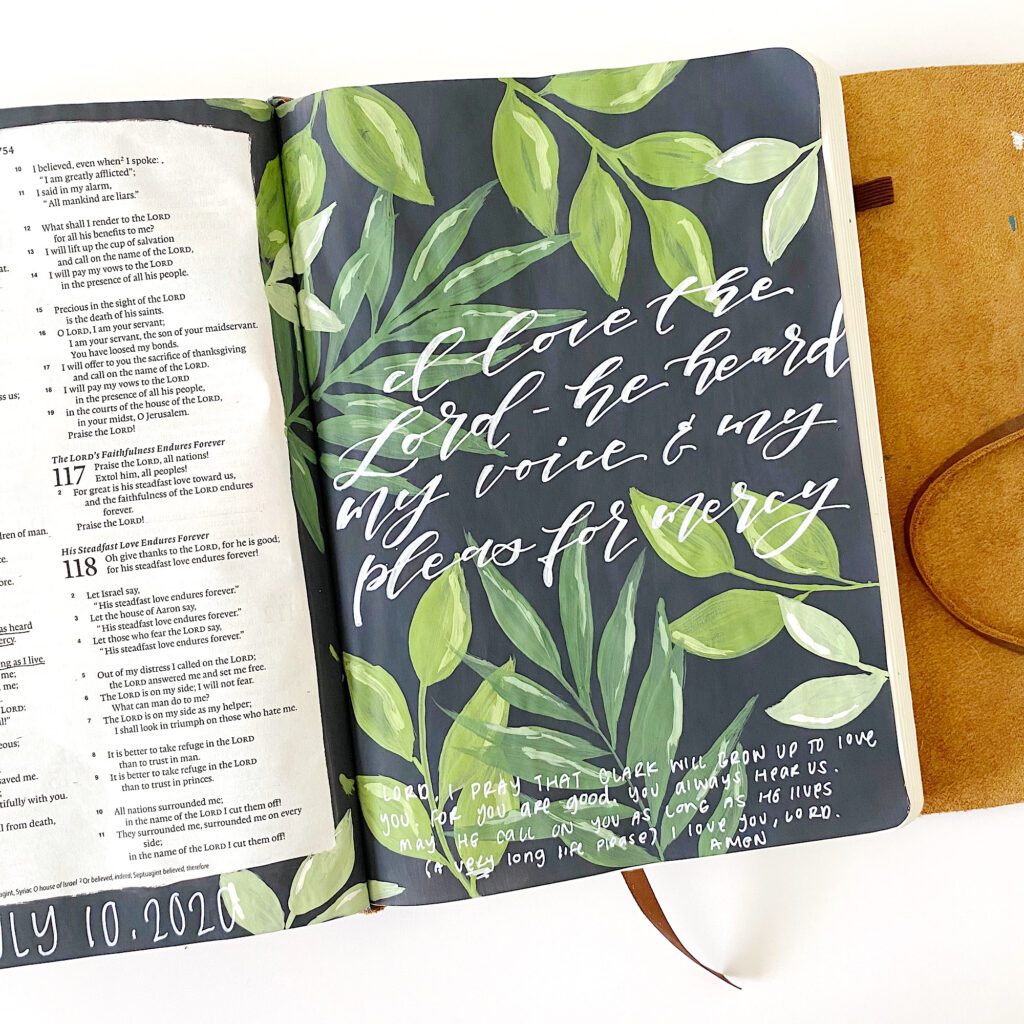 754
10 I believed, even when² I spoke:
"I am greatly afflicted";
11 I said in my alarm,
"All mankind are liars."
12 What shall I render to the LORD
for all his benefits to me?
13 I will lift up the cup of salvation
and call on the name of the LORD,
14 I will pay my vows to the LORD
in the presence of all his people.
15 Precious in the sight of the LORD
is the death of his saints.
16 O LORD, I am your servant;
I am your servant, the son of your maidservant.
You have loosed my bonds.
17 I will offer to you the sacrifice of thanksgiving
and call on the name of the LORD.
18 I will pay my vows to the LORD
in the presence of all his people,
19 in the courts of the house of the LORD,
in your midst, O Jerusalem.
Praise the LORD!
The LORD's Faithfulness Endures Forever
117 Praise the LORD, all nations!
Extol him, all peoples!
2 For great is his steadfast love toward us,
and the faithfulness of the LORD endures
forever.
Praise the LORD!
His Steadfast Love Endures Forever
118 Oh give thanks to the LORD, for he is good;
for his steadfast love endures forever!
2 Let Israel say,
"His steadfast love endures forever."
3 Let the house of Aaron say,
"His steadfast love endures forever."
4 Let those who fear the LORD say,
"His steadfast love endures forever."
5 Out of my distress I called on the LORD;
the LORD answered me and set me free.
6 The LORD is on my side; I will not fear.
What can man do to me?
7 The LORD is on my side as my helper;
I shall look in triumph on those who hate me.
8 It is better to take refuge in the LORD
than to trust in man.
9 It is better to take refuge in the LORD
than to trust in princes.
10 All nations surrounded me;
in the name of the LORD I cut them off!
11 They surrounded me, surrounded me on every
side;
in the name of the LORD I cut them off!
Syriac O house of Israel ² Or believed, indeed, Septuagint believed, therefore
us;
of man.
heard
as I live.
me;
me;
LORD:
saved me.
with you.
from death,
10.2020
I love the
Lord - he heard
my voice & my
pleas for mercy
LORD, I PRAY THAT CLARK WILL GROW UP TO LOVE
YOU, FOR YOU ARE good. YOU ALWAYS HEAR US.
MAY HE CALL ON YOU AS LONG AS HE LIVES
(A Very long life please) I love you, LORD.
AMEN